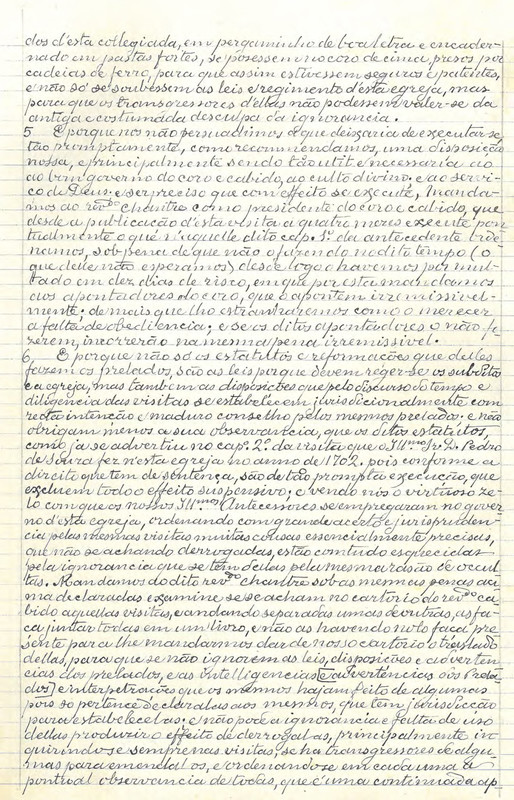 dos d'esta collegiada, em pergaminho de boa letra e encader-
nado em pastas fortes, se posessem no coro de cima, presos por
cadeias de ferro, para que assim estivessem seguros e patentes,
e não só se soubessem as leis e regimento d'esta egreja, mas
para que os transgressores d'ellas não podessem valer-se da
antiga e costumada desculpa da ignorancia.
5. E porque nos não persuadimos a que deixaria de executar-se
tão promptamente, como recommendamos, uma disposição
nossa, e principalmente sendo tão util e necessaria ao
ao bom governo do coro e cabido, ao culto divino e ao servi-
co de Deus e ser preciso que com effeito se execute, Manda-
mos ao revdo chantre como presidente do coro e cabido, que
desde a publicação d'esta visita a quatro mezes execute pon-
tualmente o que n'aquelle dito cap. 1º da antecedente orde-
namos, sob pena de que não o fazendo no dito tempo (o
que delle não esperamos) desde logo o havemos por mul-
tado em dez dias de risco, em que por esta mandamos
aos apontadores do coro, que o apontem irremissivel-
mente; de mais que lho estranharemos como o merecer
a falta de obediencia; e se os ditos apontadores o não fi-
zerem, incorrerão na mesma pena irremissivel.
6. E porque não só os estatutos e reformações que delles
fazem os prelados, são as leis porque devem reger-se os subditos
e a egreja, mas tambem as disposições que pelo discurso do tempo e
diligencia das visitas se estabelecem jurisdicionalmente com
recta intenção e maduro conselho pelos mesmos prelados: e não
obrigam menos a sua observancia, que os ditos estatutos,
como ja se advertiu no cap. 2º da visita que o Illmo Sr. D. Pedro
de Souza fez n'esta egreja no anno de 1702. pois conforme a
direito que tem de sentença, são de tão prompta execução, que
excluem todo o effeito suspensivo; e vendo nós o virtuoso ze-
lo com que os nossos Illmos Antecessores se empregaram no gover-
no d'esta egreja, ordenando com grande acerto e jurispruden-
cia pelas mesmas visitas muitas cousas essencialmente precisas,
que não se achando derrogadas, estão comtudo esquecidas
pela ignorancia que se tem dellas pela mesma rasão de occul-
tas. Mandamos do dito revdo chantre sob as mesmas penas aci-
ma declaradas examine se se acham no cartorio do revdo ca-
bido aquellas visitas, e andando separadas umas de outras, as fa-
ça juntar todas em um livro, e não as havendo nolo faça pre-
sente para lhe mandarmos dar de nosso cartorio o traslado
dellas, para que se não ignorem as leis, disposições e adverten-
cias dos prelados, e as intelligencias [e advertencias dos Prela-
dos] e interpretações que os mesmos hajam feito de algumas
pois só pertence declaral-as aos mesmos, que tem jurisdicção
para estabelecel-as; e não pode a ignorancia e falta de uso
dellas produzir o effeito de derrogal-as, principalmente in-
quirindo-se sempre nas visitas, se ha transgressores de algu-
mas para emendal-os, e ordenando-se em cada uma a
pontual observancia de todas, que é uma continuada ap-